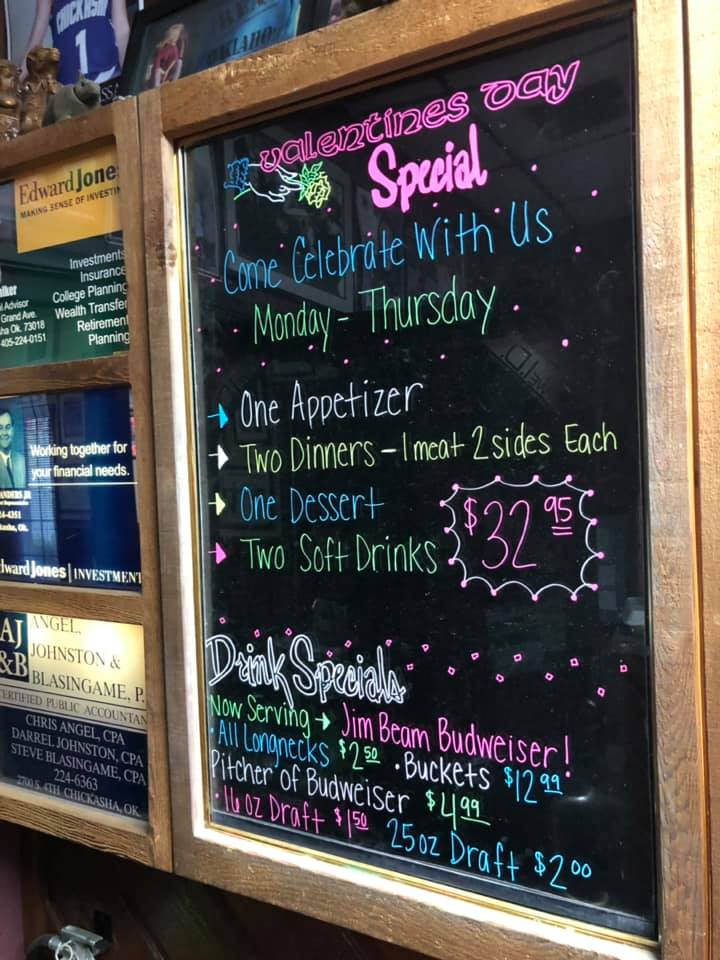 CHICKASHA
1
Edward Jones
MAKING SENSE OF INVESTIN
Investments
Insurance
College Planning
Wealth Transfer
Retirement
Planning
Advisor
Grand Ave.
ha Ok. 73018
405-224-0151
Working together for
your financial needs.
ANDERS JR
4-4351
dward Jones | INVESTMENT
AJ
&B
ANGEL,
JOHNSTON &
BLASINGAME, P.
CERTIFIED PUBLIC ACCOUNTAN
CHRIS ANGEL, CPA
DARREL JOHNSTON, CPA
STEVE BLASINGAME, CPA
224-6363
2700 S. 4TH CHICKASHA, OK.
Valentines Day
Special
Come Celebrate With Us
Monday - Thursday
→ One Appetizer
→ Two Dinners - 1 meat 2 sides Each
→ One Dessert
→ Two Soft Drinks
$32 95
Drink Specials
Now Serving → Jim Beam Budweiser!
• All Longnecks $2 50 • Buckets $12 99
Pitcher of Budweiser $4 99
• 16 oz Draft $1 50 25 oz Draft $2 00